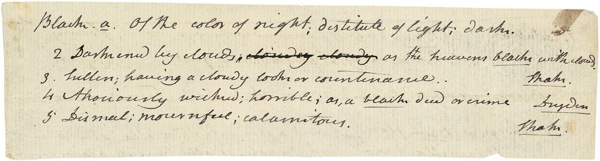 Black. a. Of the color of night; distitute of light; dark.
2 Darkened by clouds; cloudy cloudy as the heavens black with clouds.
3. Sullen; having a cloudy look or countenance. Shak.
4 Atrociously wicked; horrible; as, a black deed or crime Dryden
5 Dismal; mournful; calamitous. Shak.